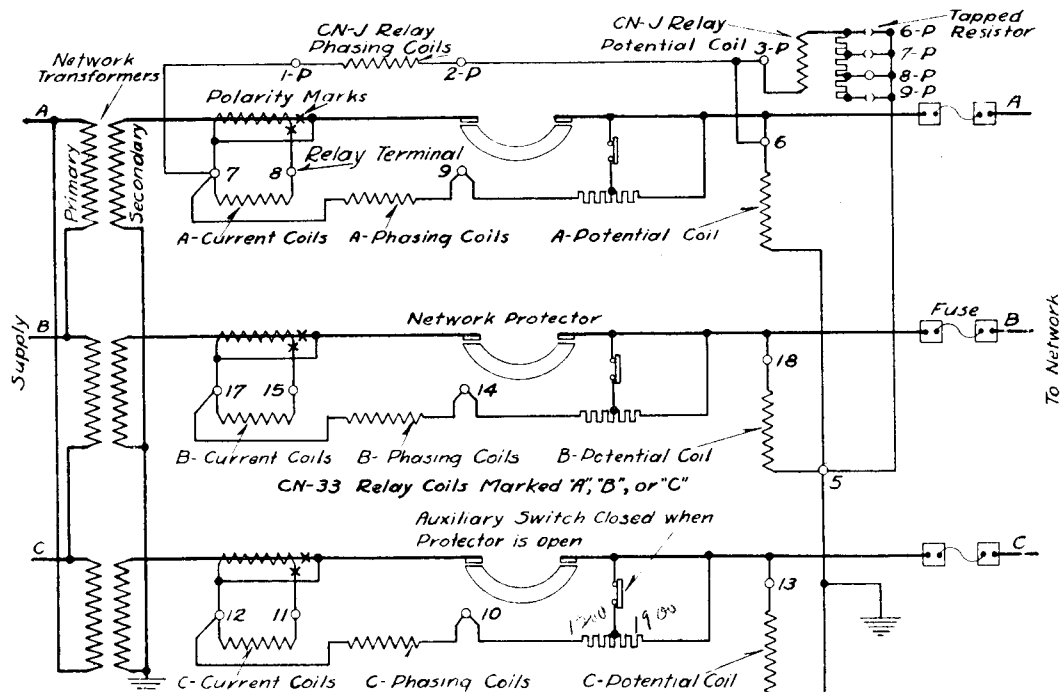 CN-J Relay
Phasing Coils
CN-J Relay
Potential Coil
3-P
Tapped
Resistor
6-P
7-P
8-P
9-P
Network
Transformers
1-P
2-P
A
Polarity Marks
A
6
7
8
Relay Terminal
9
Primary
Secondary
A-Current Coils
A-Phasing Coils
A-Potential Coil
Supply
B
Network Protector
Fuse
B
To Network
17
15
14
18
B-Current Coils
B-Phasing Coils
B-Potential Coil
5
CN-33 Relay Coils Marked "A", "B", or "C"
Auxiliary Switch Closed when
Protector is open
C
C
12
11
10
1300 1900
13
C-Current Coils
C-Phasing Coils
C-Potential Coil